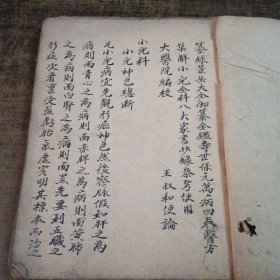 纂錄葉氏大全御纂金鑑壽世保元萬病回春醫方
集解小兒全科大家書抄錄参考使用
大醫院編校 王叔和便論
小兒科
小兒神色總断
凡小兒病宜先觀形症神色然後察脉假如肝之為
病則面青心之為病則面赤脾之為病則面黄肺
之為病則面白腎之為病則面黑先要別五臟之
形症次看禀受盈虧胎氣虛实明其標本而治之